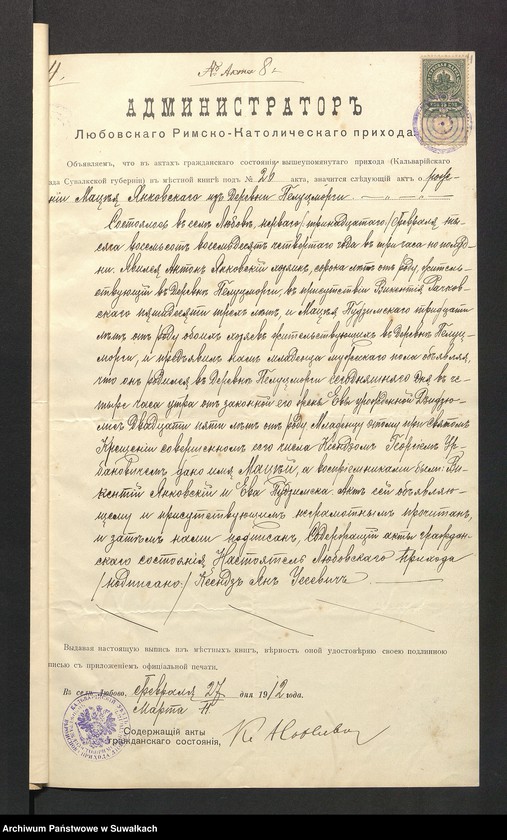 № Акта 8 г.
АДМИНИСТРАТОРЪ
Любовскаго Римско-Католическаго прихода
Объявляемъ, что въ актахъ гражданскаго состоянія вышеупомянутаго прихода (Кальварійскаго
Сувалкской губерніи) въ мѣстной книгѣ подъ № 26 акта, значится слѣдующій актъ о рожде-
ніи Мацѣя Янковскаго изъ деревни
Состоялось въ селѣ Любовѣ, перваго /тринадцатаго/ Февраля ты-
сяча восемьсотъ восемьдесятъ четвертаго года въ три часа по полуд-
ни. Явился Антонъ Янковскій сорока лѣтъ отъ роду, житель-
ствующій въ деревнѣ въ присутствіи Викентія
пятидесяти трехъ лѣтъ, и Мацѣя тридцати
лѣтъ отъ роду обоихъ хозяевъ жительствующихъ въ деревнѣ
и предъявилъ намъ младенца мужескаго пола объявляя,
что онъ родился въ деревнѣ сегодняшняго дня въ че-
тыре часа утра отъ законной его жены Евы урожденной
двадцати пяти лѣтъ отъ роду. Младенцу этому при Святомъ
Крещеніи совершенномъ его числа Ксендзомъ Георгіемъ Ур-
бановичемъ дано имя Мацѣй, а воспріемниками были: Ви-
кентій Янковскій и Ева Актъ сей объявляю-
щему и присутствующимъ неграмотнымъ прочитанъ,
и затѣмъ нами подписанъ, Содержащій акты граждан-
скаго состоянія, Настоятель Любовскаго Прихода
/подписано:/ Ксендзъ Янъ
Выдавая настоящую выпись изъ мѣстныхъ книгъ, вѣрность оной удостовѣряю своею подлинною
съ приложеніемъ офиціальной печати.
Въ селѣ Любово, Февраля 27 дня 1912 года.
Марта 11
Содержащій акты
гражданскаго состоянія,
Archiwum Państwowe w Suwałkach